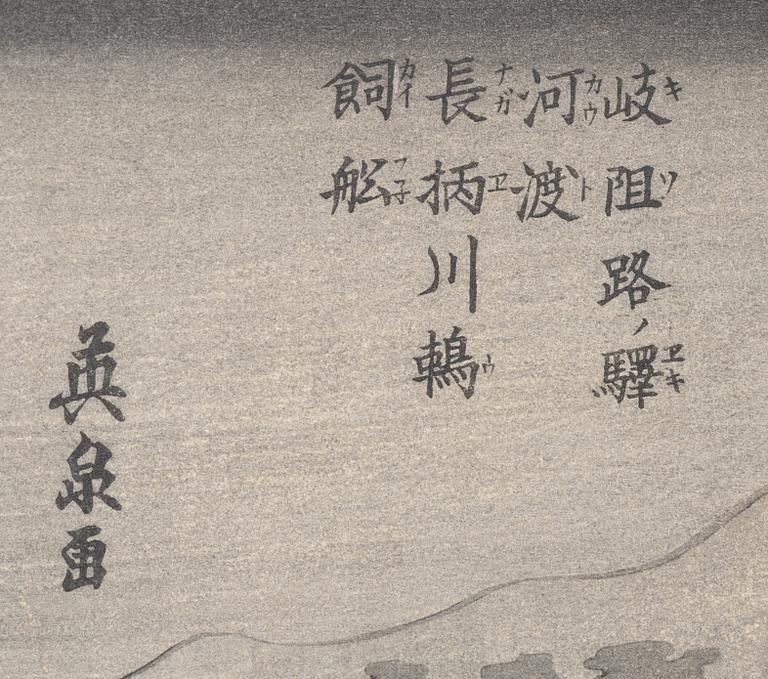 岐阻路ノ驛
キソ ヱキ
河渡
カウト
長柄川鵜
ナガヱ ウ
飼舩
カイフ子
英泉画